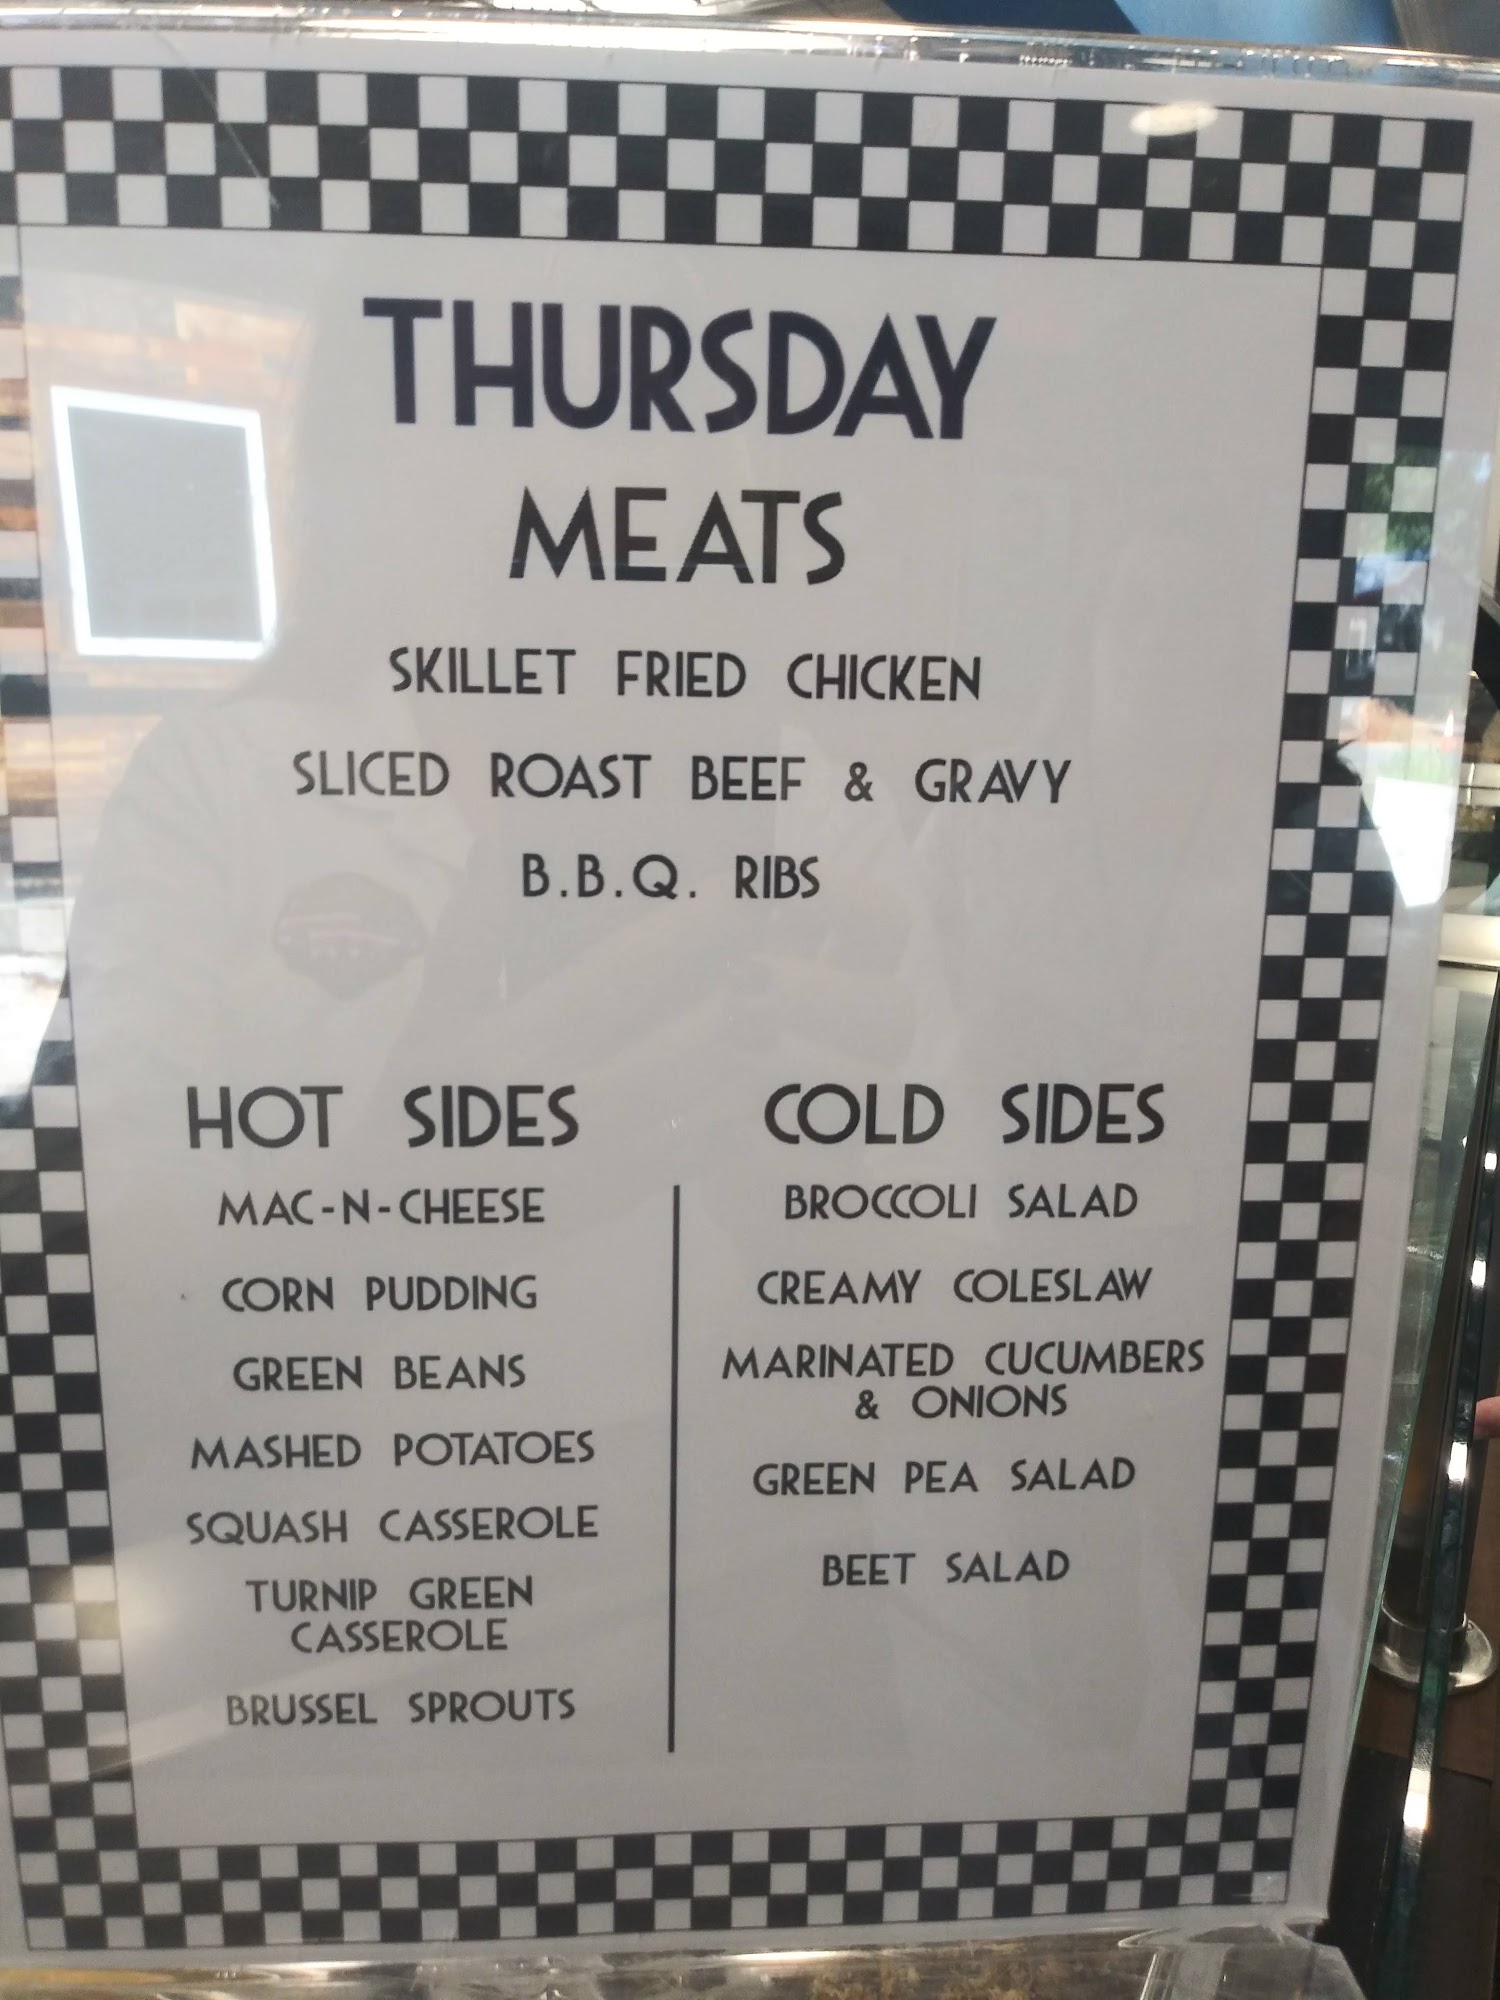 THURSDAY
MEATS
SKILLET FRIED CHICKEN
SLICED ROAST BEEF & GRAVY
B.B.Q. RIBS
HOT SIDES
MAC-N-CHEESE
CORN PUDDING
GREEN BEANS
MASHED POTATOES
SQUASH CASSEROLE
TURNIP GREEN
CASSEROLE
BRUSSEL SPROUTS
COLD SIDES
BROCCOLI SALAD
CREAMY COLESLAW
MARINATED CUCUMBERS
& ONIONS
GREEN PEA SALAD
BEET SALAD